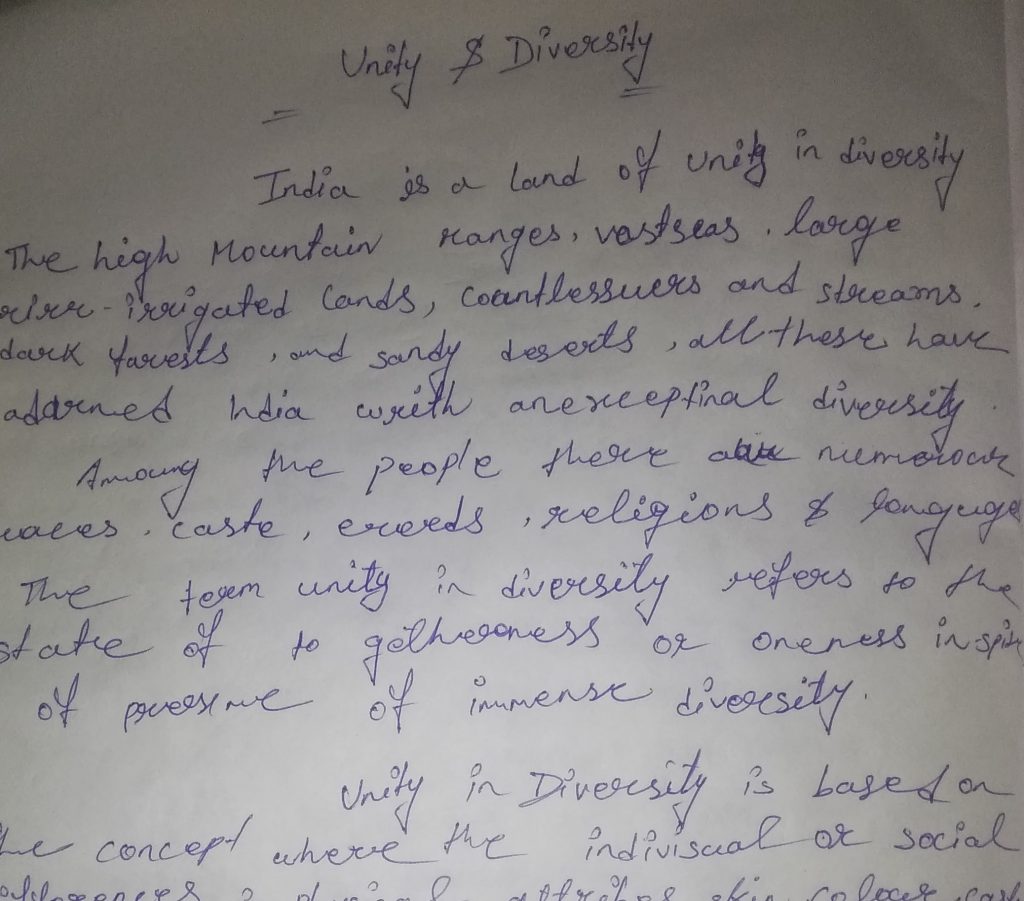 Unity & Diversity
India is a land of unity in diversity
The high Mountain ranges, vastseas, large
river-irrigated lands, countlessuers and streams,
dark forests, and sandy deserts, all these have
adorned India with anexceptinal diversity.
Amoung the people there are numerour
races, caste, creeds, religions & languge
The term unity in diversity refers to the
state of to getherness or oneness inspite
of presence of immense diversity.
Unity in Diversity is based on
the concept where the indivisual or social
skin colour cast